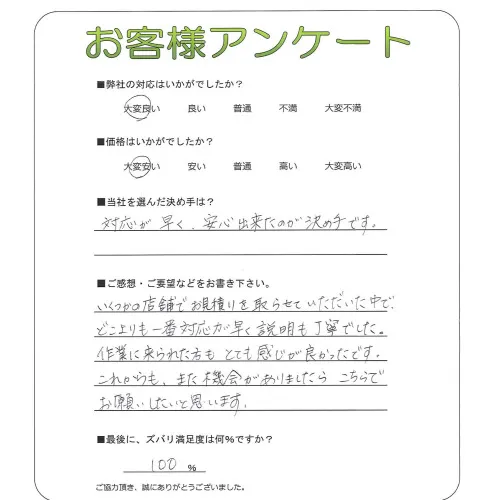 お客様アンケート
■弊社の対応はいかがでしたか？
大変良い 良い 普通 不満 大変不満
■価格はいかがでしたか？
大変安い 安い 普通 高い 大変高い
■当社を選んだ決め手は？
対応が早く、安心出来たのが決め手です。
■ご感想・ご要望などをお書き下さい。
いくつかの店舗でお見積りを取らせていただいた中で、
どこよりも一番対応が早く説明も丁寧でした。
作業に来られた方もとても感じが良かったです。
これからも、また機会がありましたらこちらで
お願いしたいと思います。
■最後に、ズバリ満足度は何%ですか？
100 %
ご協力頂き、誠にありがとうございました。